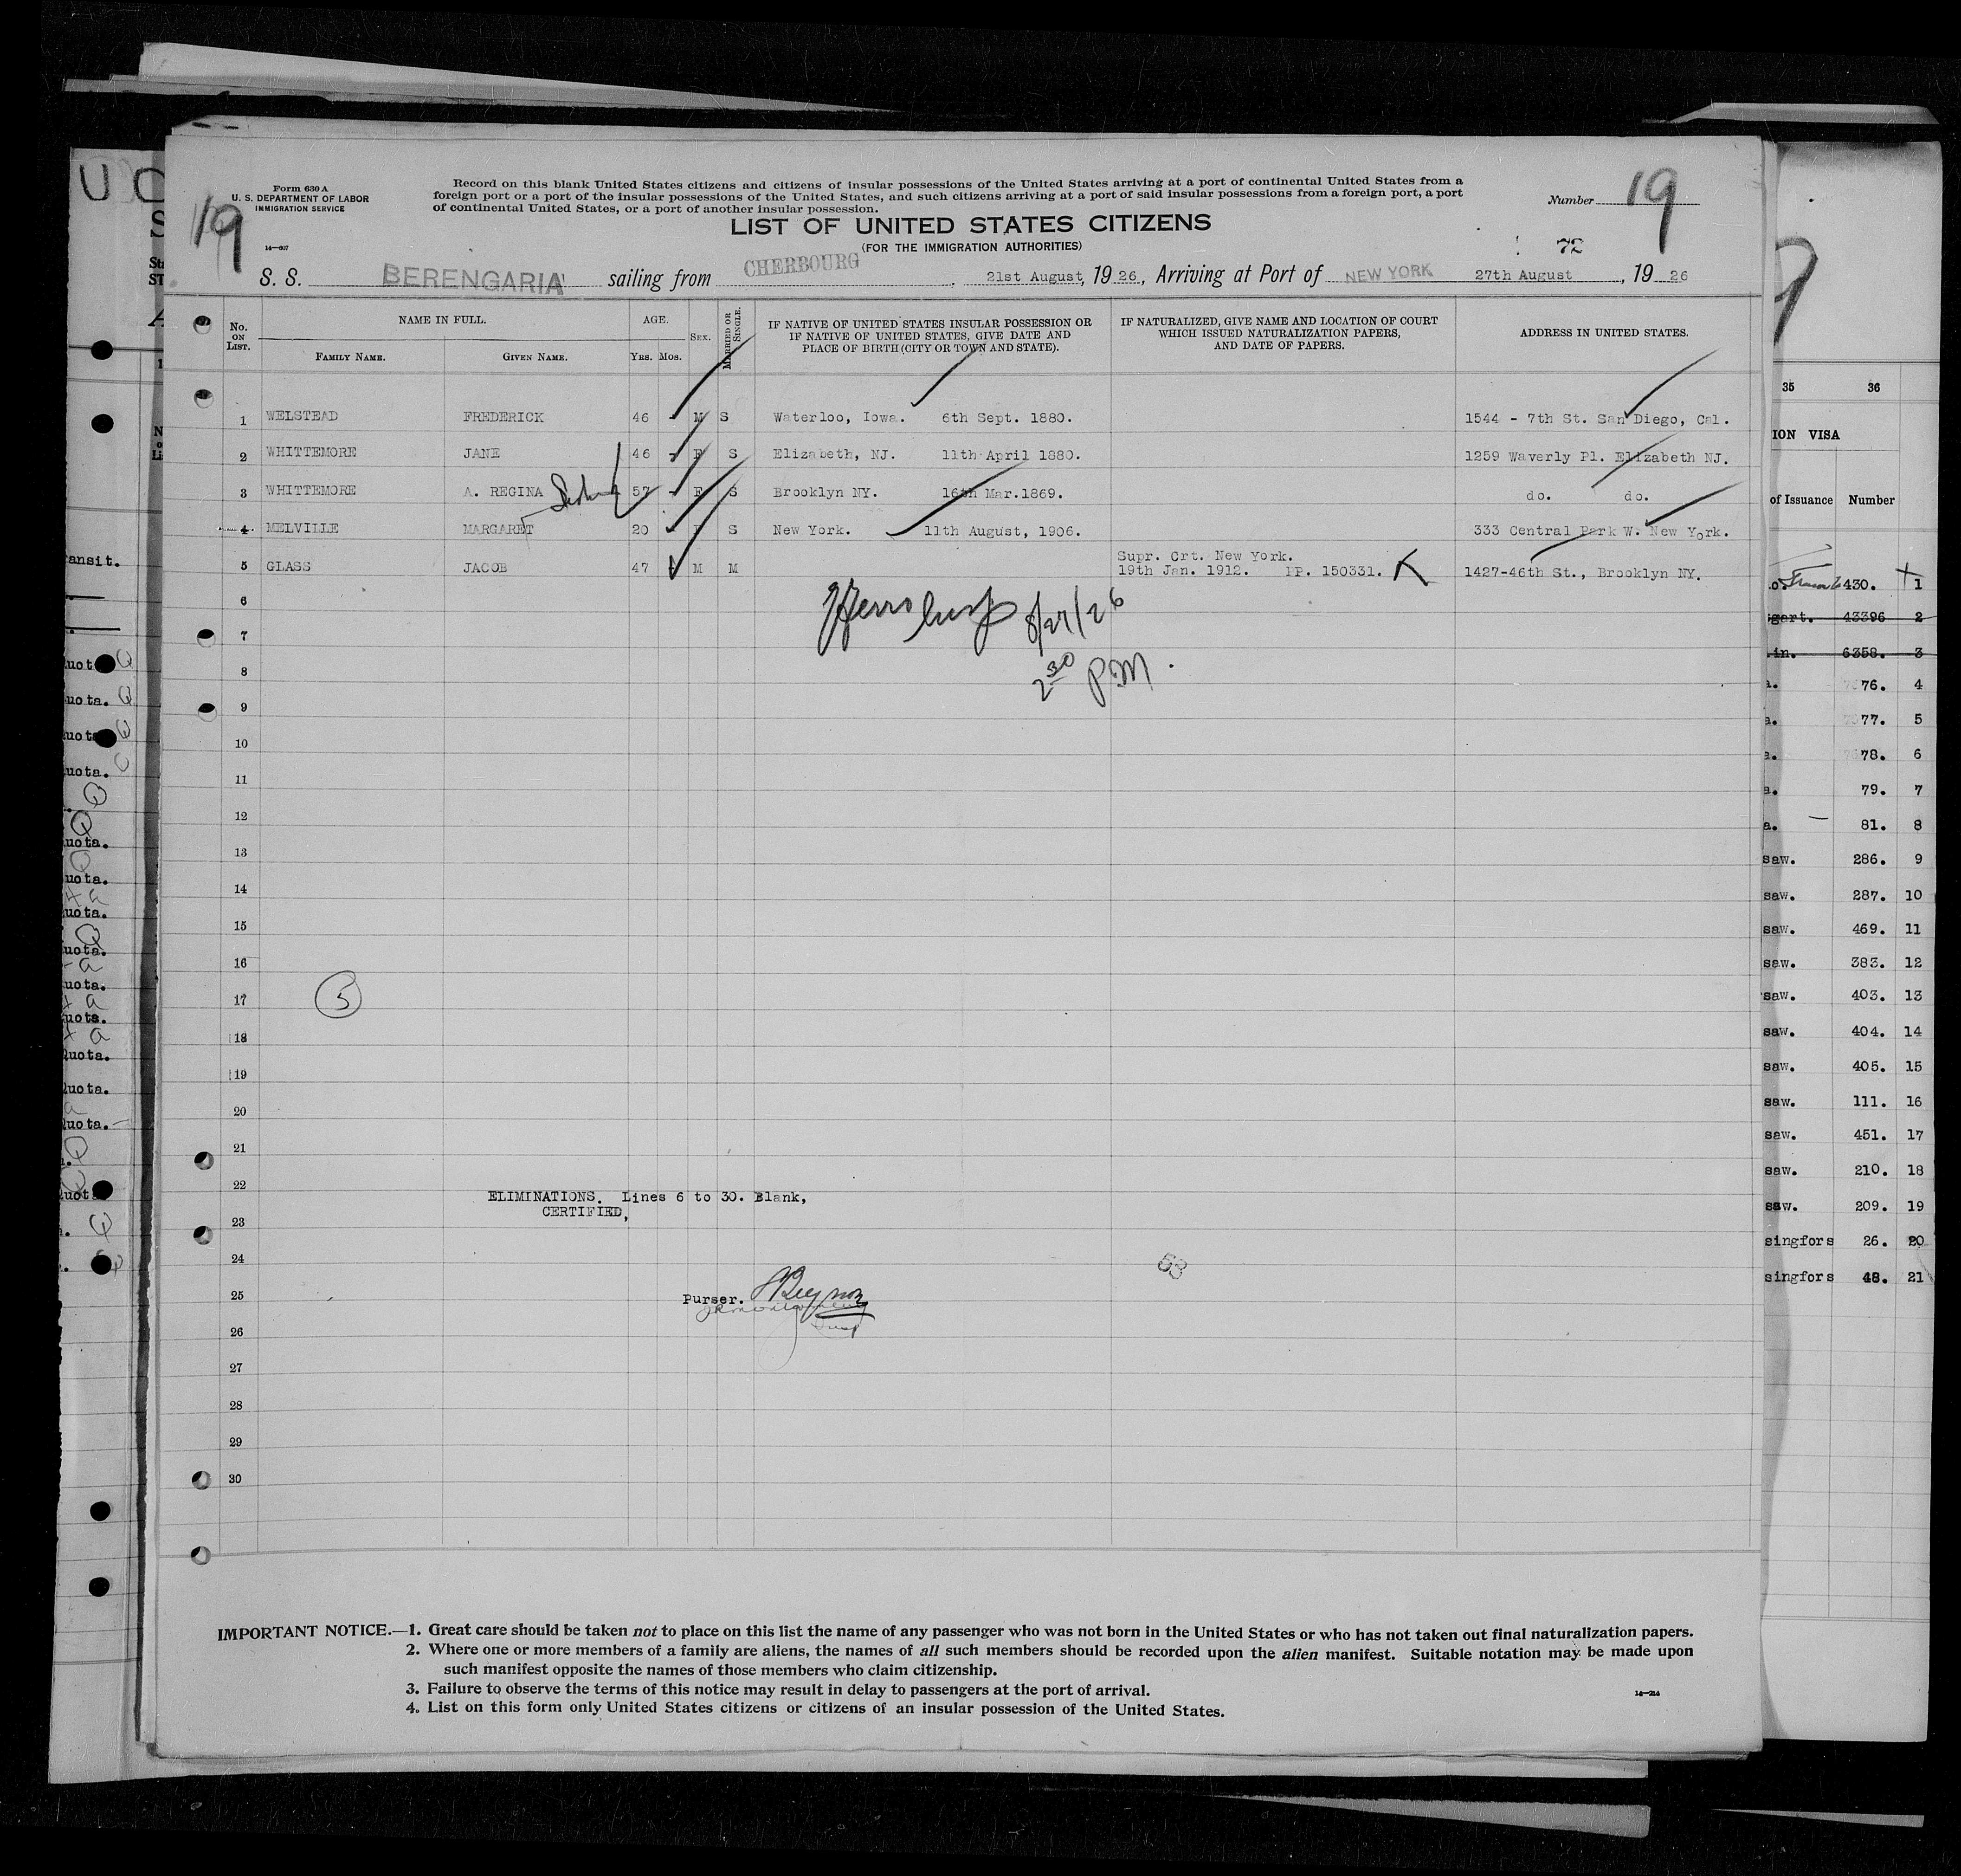 Form 630 A
U. S. DEPARTMENT OF LABOR
IMMIGRATION SERVICE
14—607
Record on this blank United States citizens and citizens of insular possessions of the United States arriving at a port of continental United States from a
foreign port or a port of the insular possessions of the United States, and such citizens arriving at a port of said insular possessions from a foreign port, a port
of continental United States, or a port of another insular possession.
Number 19
19
LIST OF UNITED STATES CITIZENS
(FOR THE IMMIGRATION AUTHORITIES)
72
S. S. BERENGARIA sailing from CHERBOURG, 21st August, 1926, Arriving at Port of NEW YORK 27th August, 1926
No. ON LIST. NAME IN FULL. AGE. SEX. MARRIED OR SINGLE. IF NATIVE OF UNITED STATES INSULAR POSSESSION OR IF NATIVE OF UNITED STATES, GIVE DATE AND PLACE OF BIRTH (CITY OR TOWN AND STATE). IF NATURALIZED, GIVE NAME AND LOCATION OF COURT WHICH ISSUED NATURALIZATION PAPERS, AND DATE OF PAPERS. ADDRESS IN UNITED STATES.
FAMILY NAME. GIVEN NAME. YRS. MOS.
1 WELSTEAD FREDERICK 46 - M S Waterloo, Iowa. 6th Sept. 1880. 1544 - 7th St. San Diego, Cal.
2 WHITTEMORE JANE 46 - F S Elizabeth, NJ. 11th April 1880. 1259 Waverly Pl. Elizabeth NJ.
3 WHITTEMORE A. REGINA 57 - F S Brooklyn NY. 16th Mar.1869. do. do.
4 MELVILLE MARGARET 20 - F S New York. 11th August, 1906. 333 Central Park W. New York.
5 GLASS JACOB 47 M M Supr. Crt. New York.
19th Jan. 1912. PP. 150331. K 1427-46th St., Brooklyn NY.
6
8/27/26
7
8
2 30 PM.
9
10
11
12
13
14
15
16
17 5
18
19
20
21
22
ELIMINATIONS. Lines 6 to 30. Blank,
CERTIFIED,
23
24
53
25
Purser.
26
27
28
29
30
IMPORTANT NOTICE.—1. Great care should be taken not to place on this list the name of any passenger who was not born in the United States or who has not taken out final naturalization papers.
2. Where one or more members of a family are aliens, the names of all such members should be recorded upon the alien manifest. Suitable notation may be made upon
such manifest opposite the names of those members who claim citizenship.
3. Failure to observe the terms of this notice may result in delay to passengers at the port of arrival.
4. List on this form only United States citizens or citizens of an insular possession of the United States.
14—214
35 36
ION VISA
of Issuance Number
430. 1
gart. 43396 2
in. 6358. 3
a. 76. 4
a. 77. 5
a. 78. 6
a. 79. 7
a. 81. 8
saw. 286. 9
saw. 287. 10
saw. 469. 11
saw. 383. 12
saw. 403. 13
saw. 404. 14
saw. 405. 15
saw. 111. 16
saw. 451. 17
saw. 210. 18
saw. 209. 19
singfors 26. 20
singfors 48. 21